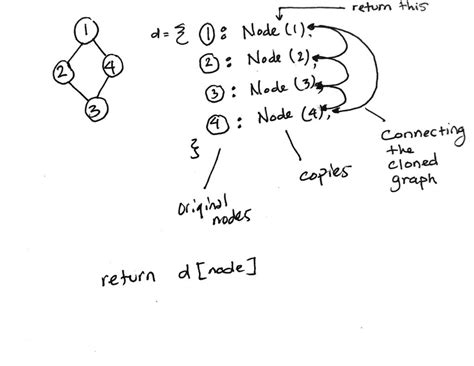 return this
1
2
4
3
d = {
1 : Node (1),
2 : Node (2),
3 : Node (3),
4 : Node (4),
}
original
nodes
copies
Connecting
the
cloned
graph
return d [node]